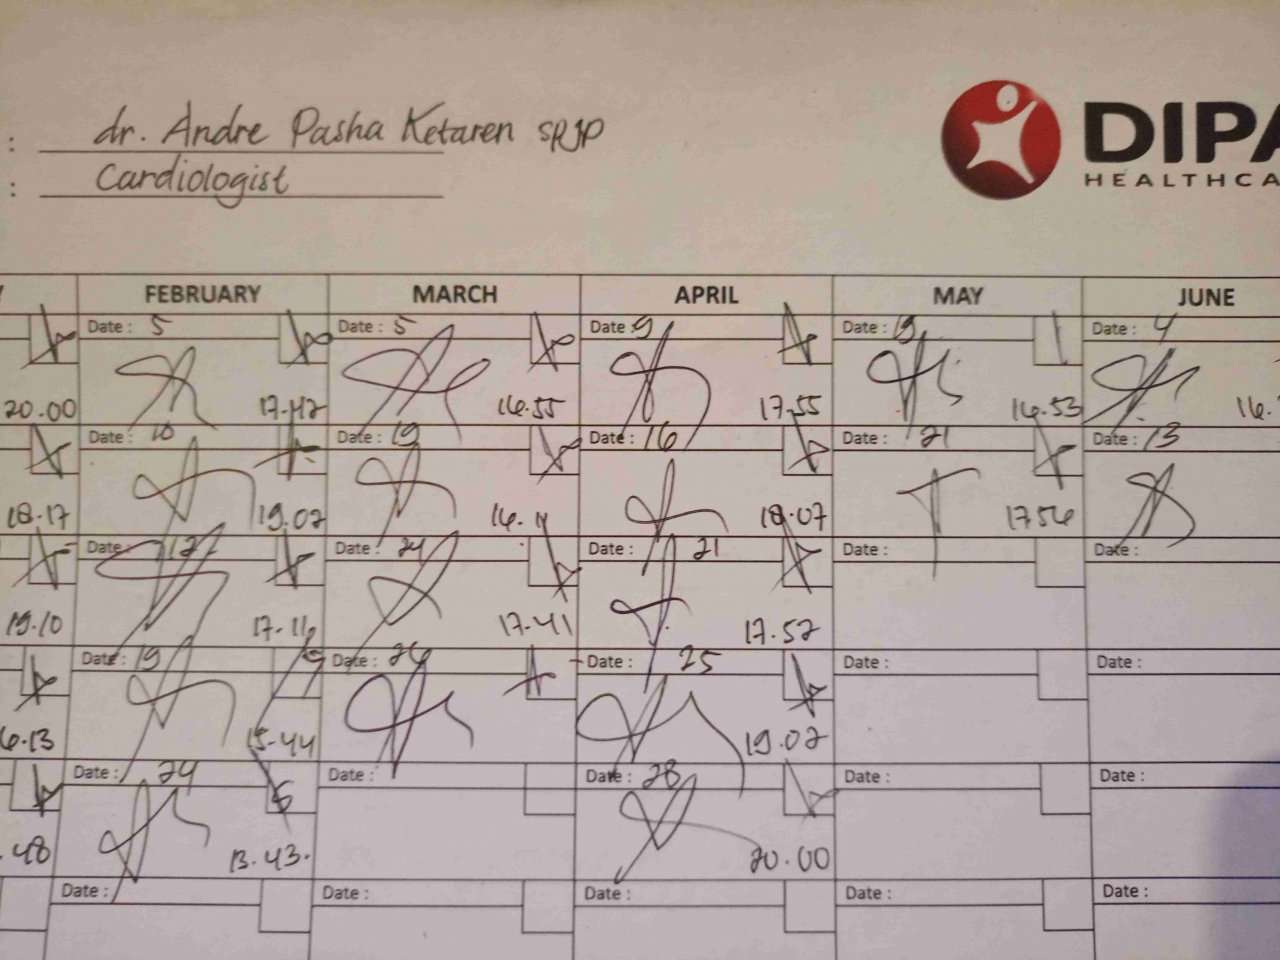 : dr. Andre Pasha Ketaren SpJP
: Cardiologist
DIPA
HEALTHCA
FEBRUARY MARCH APRIL MAY JUNE
Date : 5 Date : 5 Date : 9 Date : 19 Date : 4
20.00 17.42 16.55 17.55 16.53 16.
Date : 10 Date : 19 Date : 16 Date : 21 Date : 13
18.17 19.02 16.11 18.07 17.56
Date : 12 Date : 24 Date : 21 Date : Date :
19.10 17.16 17.41 17.52
Date : 19 Date : 26 Date : 25 Date : Date :
6.13 15.44 19.02
Date : 24 Date : Date : 28 Date : Date :
.48 13.43. 20.00
Date : Date : Date : Date : Date :